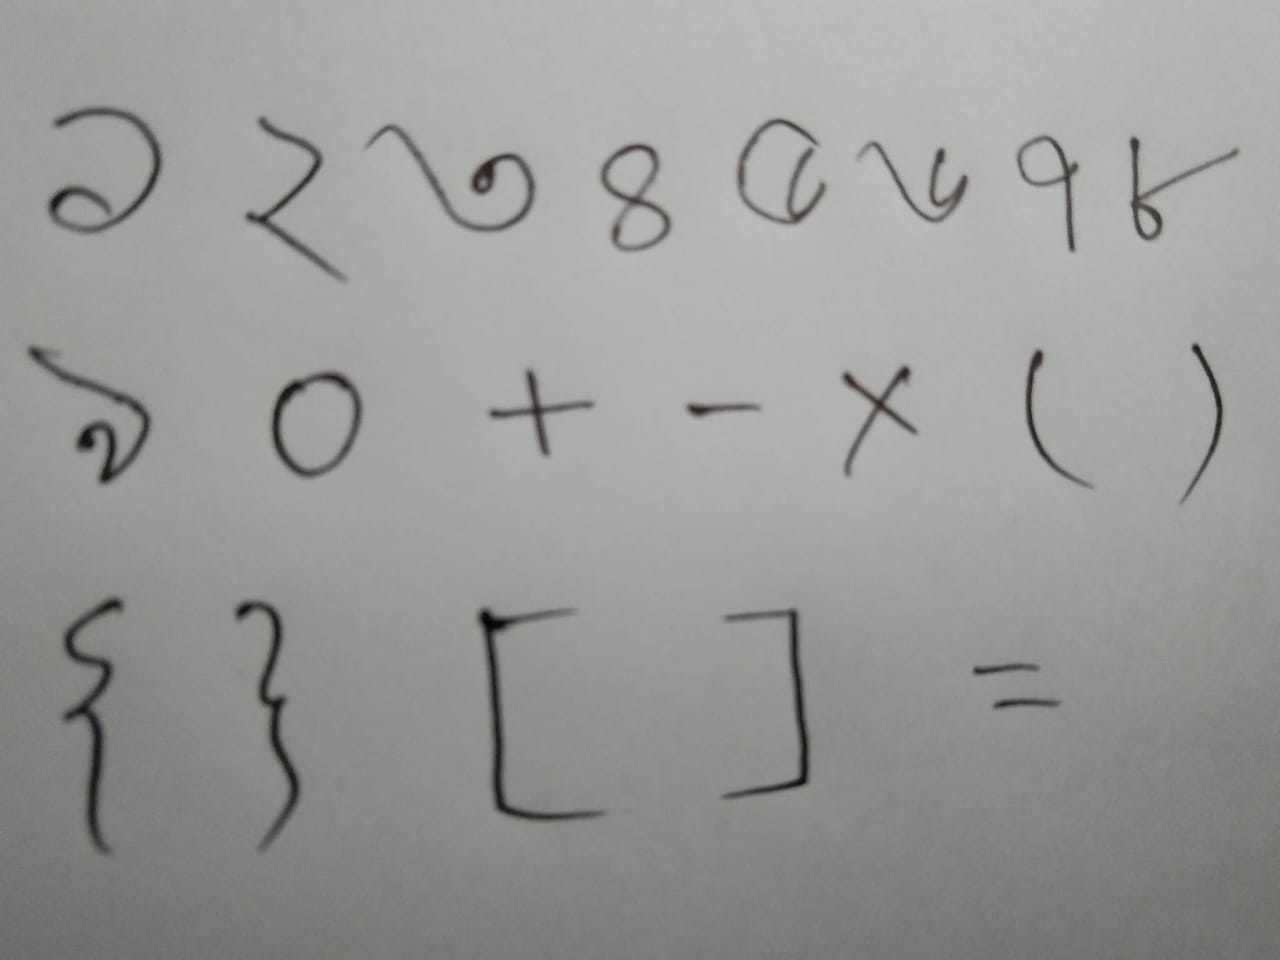 ১ ২ ৩ ৪ ৫ ৬ ৭ ৮
৯ ০ + - × ( )
{ } [ ] =